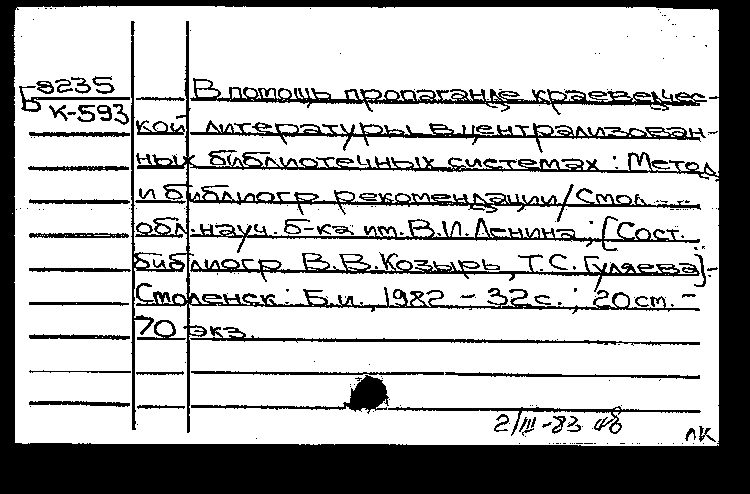 Б-8235
К-593
В помощь пропаганде краеведчес-
кой литературы в централизован-
ных библиотечных системах : Метод.
и библиогр. рекомендации / Смол.
обл. науч. б-ка им. В.И.Ленина ; [Сост.
библиогр. В.В.Козырь, Т.С.Гуляева].-
Смоленск : Б.и., 1982 - 32 с. ; 20 см. -
70 экз.
2/III-83
лк